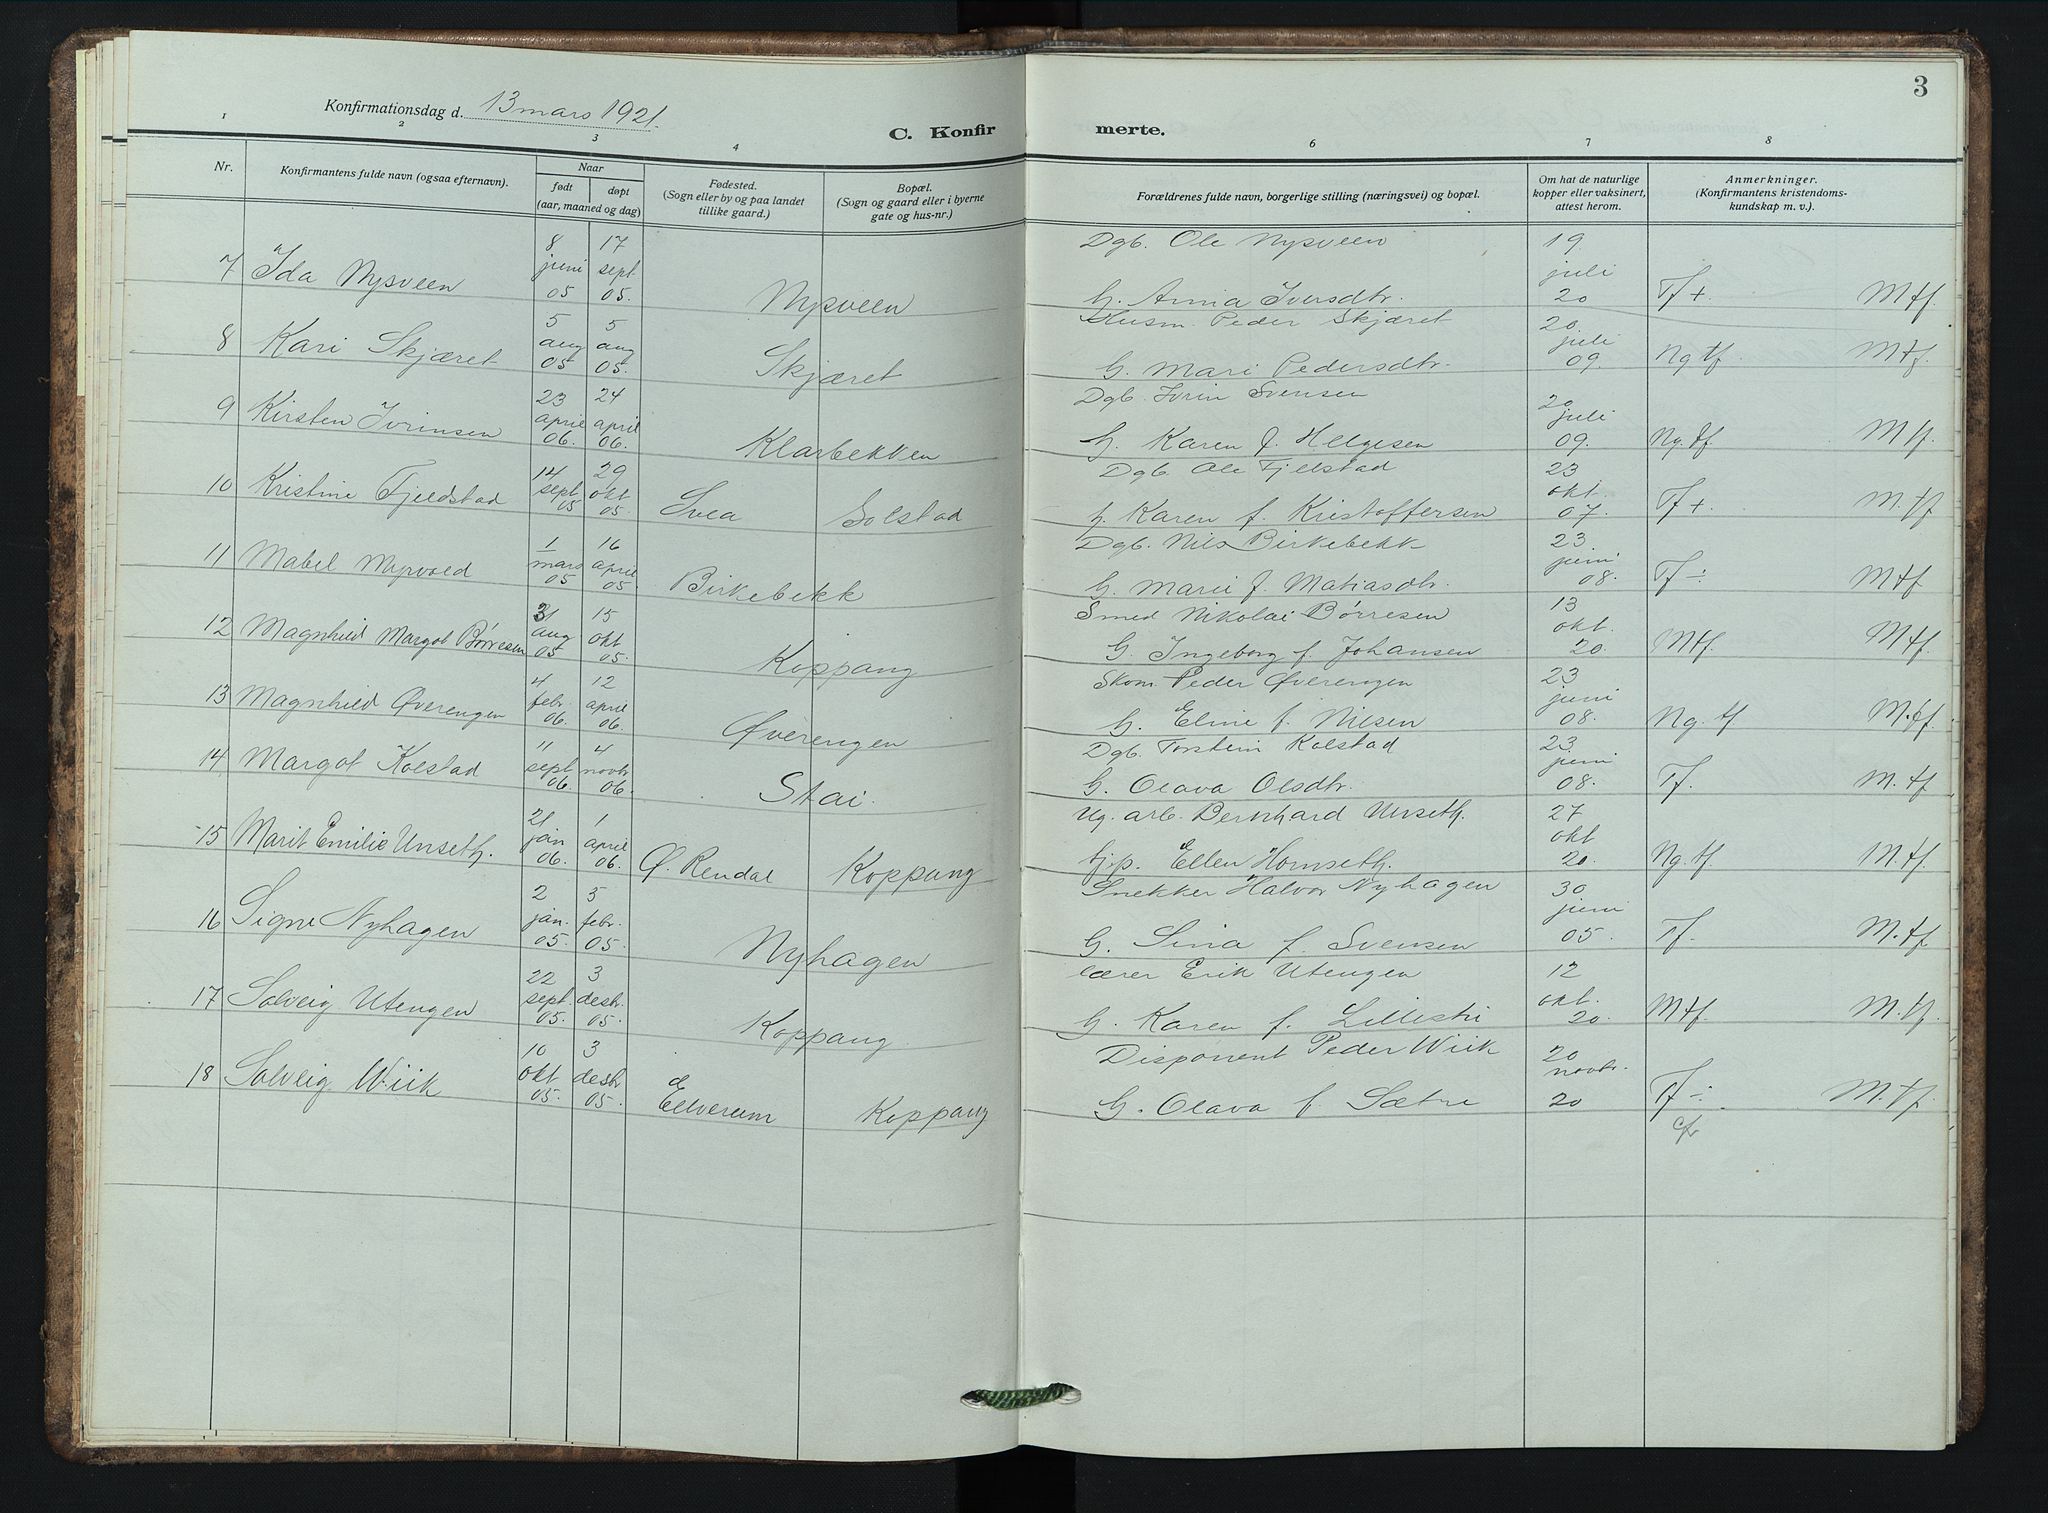 3
Konfirmationsdag d. 13 mars 1921.
C. Konfirmerte.
1 2 3 4 6 7 8
Nr. Konfirmantens fulde navn (ogsaa efternavn). Naar født døpt (aar, maaned og dag) Fødested. (Sogn eller by og paa landet tillike gaard.) Bopæl. (Sogn og gaard eller i byerne gate og hus-nr.) Forældrenes fulde navn, borgerlige stilling (næringsvei) og bopæl. Om hat de naturlige kopper eller vaksinert, attest herom. Anmerkninger. (Konfirmantens kristendomskundskap m. v.).
7 Ida Nysveen 8 juni 05 17 sept. 05. Nysveen Dgb. Ole Nysveen G. Anna Iversdtr. 19 juli 20 Tf +. Mtf.
8 Kari Skjæret 5 aug 05 5 aug 05. Skjæret Husm. Peder Skjæret G. Mari Pedersdtr. 20 juli 09. Ng tf. Mtf.
9 Kirsten Ivrinsen 23 april 06. 24 april 06. Klarbekken Dgb. Ivrin Svensen G. Karen f. Helgesen 20 juli 09. Ng. tf. Mtf.
10 Kristine Fjeldstad 14 sept 05 29 okt 05. Svea Solstad Dgb. Ole Fjelstad G. Karen f. Kristoffersen 23 okt. 07. Tf +. M. tf
11 Mabel Myrvold 1 mars 05 16 april 05. Birkebekk Dgb. Nils Birkebekk G. Marie f. Matiasdtr. 23 juni 08. Tf ÷. Mtf
12 Magnhild Margot Børresen 31 aug 05 15 okt 05. Koppang Smed Nikolai Børresen G. Ingeborg f. Johansen 13 okt. 20. Mtf. Mtf.
13 Magnhild Øverengen 4 febr. 06. 12 april 06. Øverengen Skom. Peder Øverengen G. Eline f. Nilsen 23 juni 08. Ng. tf M. tf.
14 Margot Kolstad 11 sept 06. 4 novbr 06. Stai. Dgb. Torstein Kolstad G. Olava Olsdtr. 23 juni 08. Tf. M. tf
15 Marit Emilie Unseth. 21 jan 06. 1 april 06. Ø. Rendal Koppang Ug. arb. Bernhard Unseth. Ellen Hornseth. 27 okt 20. Ng. tf M. tf.
16 Signe Nyhagen 2 jan. 05. 5 febr. 05. Nyhagen Snekker Halvor Nyhagen G. Sina f. Svensen 30 juni 05. Tf. M. tf.
17 Solveig Utengen 22 sept. 05. 3 desbr. 05. Koppang. Lærer Erik Utengen G. Karen f. 12 okt. 20. Mtf. M. tf.
18 Solveig Wiik 10 okt 05. 3 desbr 05. Elverum Koppang Disponent Peder Wiik G. Olava f. Sætre 20 novbr. 20 Tf ÷. M. tf.